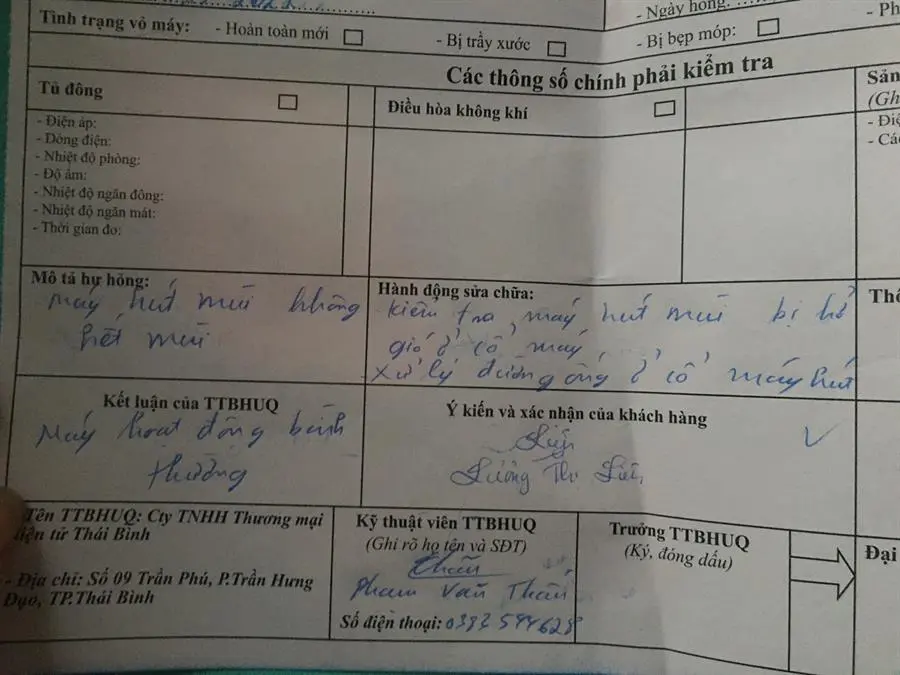 - Ngày hỏng:
Tình trạng vỏ máy: - Hoàn toàn mới - Bị trầy xước - Bị bẹp móp: - Ph
Các thông số chính phải kiểm tra
Tủ đông
Điều hòa không khí
Sản
(Gh
- Điện áp:
- Dòng điện:
- Nhiệt độ phòng:
- Độ ẩm:
- Nhiệt độ ngăn đông:
- Nhiệt độ ngăn mát:
- Thời gian đo:
- Điệ
- Các
Mô tả hư hỏng:
máy hút mùi không
hết mùi
Hành động sửa chữa:
kiểm tra máy hút mùi bị hở
gió ở cổ máy
xử lý đường ống ở cổ máy hút
Thô
Kết luận của TTBHUQ
Máy hoạt động bình
thường
Ý kiến và xác nhận của khách hàng
Lương Thị
Tên TTBHUQ: Cty TNHH Thương mại
điện tử Thái Bình
- Địa chỉ: Số 09 Trần Phú, P.Trần Hưng
Đạo, TP.Thái Bình
Kỹ thuật viên TTBHUQ
(Ghi rõ họ tên và SĐT)
Phạm Văn
Số điện thoại: 0382594628
Trưởng TTBHUQ
(Ký, đóng dấu)
Đại